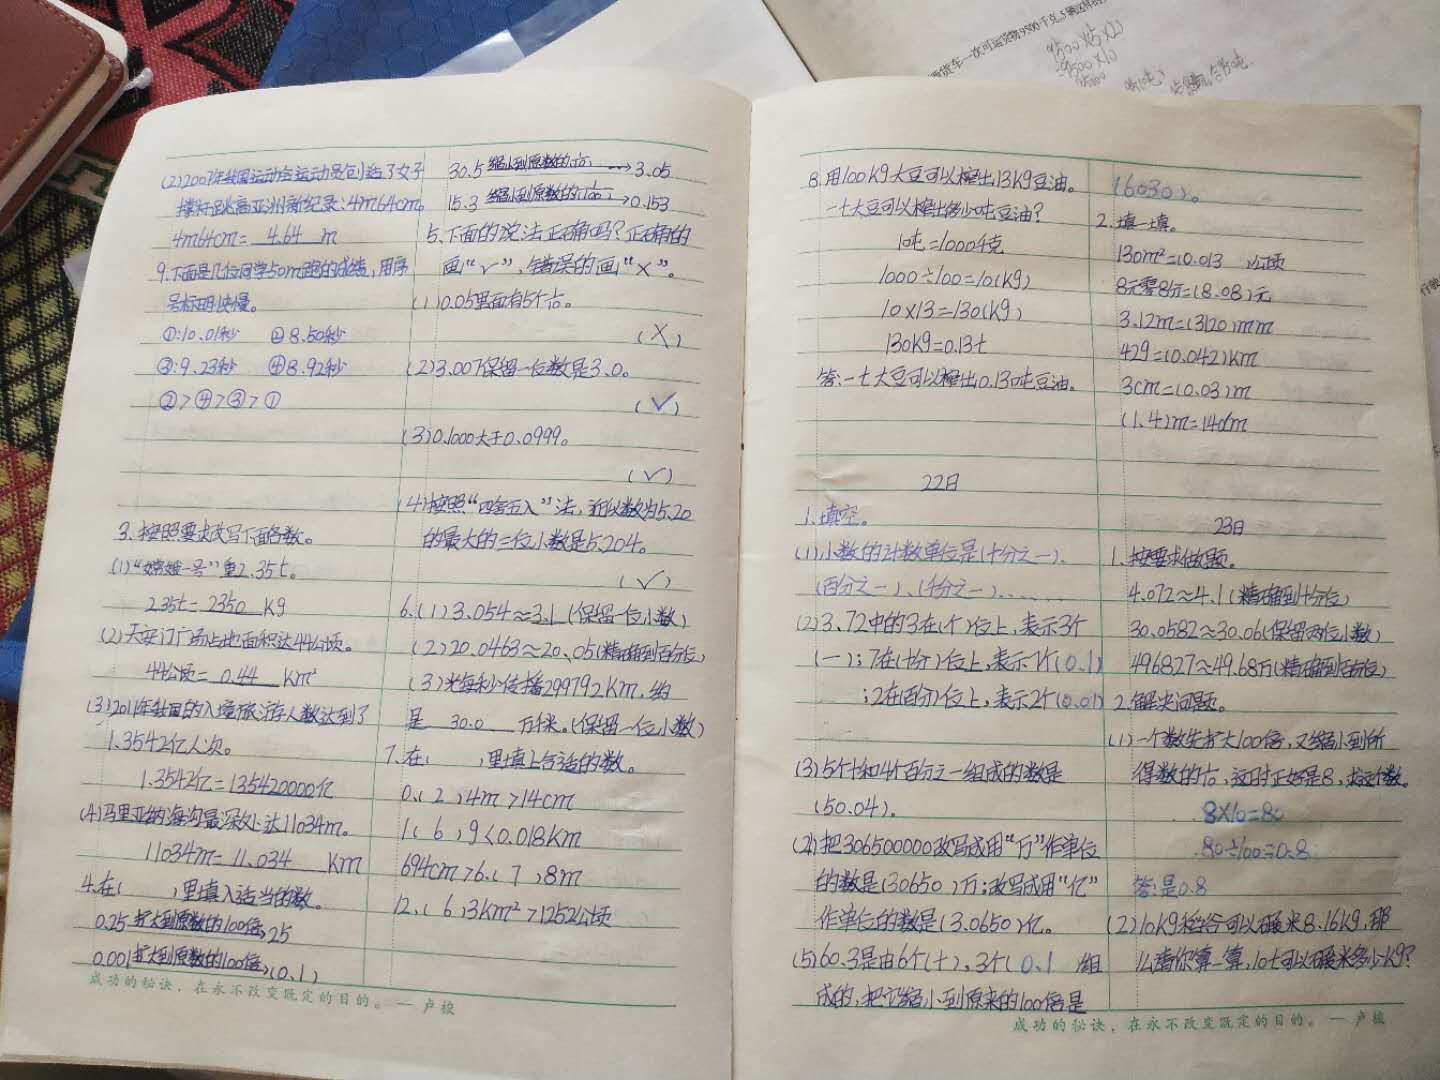 (2)2007年我国运动会运动员创造了女子
撑杆跳高亚洲新纪录:4m64cm。
4m64cm= 4.64 m
9.下面是几位同学50m跑的成绩,用序
号标明快慢。
①:10.01秒 ②8.50秒
③:9.23秒 ④8.92秒
②>④>③>①
3.按照要求改写下面各数。
(1)“嫦娥一号”重2.35t。
2.35t= 2350 kg
(2)天安门广场占地面积达44公顷。
44公顷= 0.44 km²
(3)2011年我国的入境旅游人数达到了
1.3542亿人次。
1.3542亿=135420000亿
(4)马里亚纳海沟最深处达11034m。
11034m= 11.034 km
4.在( )里填入适当的数。
0.25扩大到原数的100倍→25
0.001扩大到原数的100倍→(0.1)
成功的秘诀,在永不改变既定的目的。—卢梭
30.5缩小到原数的→3.05
15.3缩小到原数的→0.153
5.下面的说法正确吗?正确的
画“√”,错误的画“×”。
(1)0.05里面有5个
(×)
(2)3.007保留一位数是3.0。
(√)
(3)0.1000大于0.0999。
(√)
(4)按照“四舍五入”法,近似数为5.20
的最大的三位小数是5.204。
(√)
6.(1)3.054≈3.1(保留一位小数)
(2)20.0463≈20.05(精确到百分位)
(3)光每秒传播299792km,约
是 30.0 万千米。(保留一位小数)
7.在( )里填上合适的数。
0.(2)4m>14cm
1(6)9<0.018km
694cm>6.(7)8m
12.(6)3km²>1252公顷
8.用100kg大豆可以榨出13kg豆油。
一t大豆可以榨出多少吨豆油?
1吨=1000千克
1000÷100=10(kg)
10×13=130(kg)
130kg=0.13t
答:一t大豆可以榨出0.13吨豆油。
22日
1.填空。
(1)小数的计数单位是(十分之一)、
(百分之一)、(千分之一)......
(2)3.72中的3在(个)位上,表示3个
(一);7在(十分)位上,表示7个(0.1)
;2在(百分)位上,表示2个(0.01)
(3)5个十和4个百分之一组成的数是
(50.04)。
(4)把306500000改写成用“万”作单位
的数是(30650)万;改写成用“亿”
作单位的数是(3.0650)亿。
(5)60.3是由6个(十),3个(0.1 )组
成的,把它缩小到原来的100倍是
(6030)。
2.填一填。
130m²=(0.013 )公顷
8元零8分=(8.08)元
3.12m=(3120)mm
429=(0.042)km
3cm=(0.03)m
(1.4)m=14dm
23日
1.按要求做题。
4.072≈4.1(精确到十分位)
30.0582≈30.06(保留两位小数)
496827≈49.68万(精确到百分位)
2.解决问题。
(1)一个数先扩大100倍,又缩小到所
得数的,这时正好是8,求这个数。
8×10=80
80÷100=0.8
答:是0.8
(2)10kg稻谷可以碾米8.16kg,那
么请你算一算,10t可以碾米多少kg?
成功的秘诀,在永不改变既定的目的。—卢梭